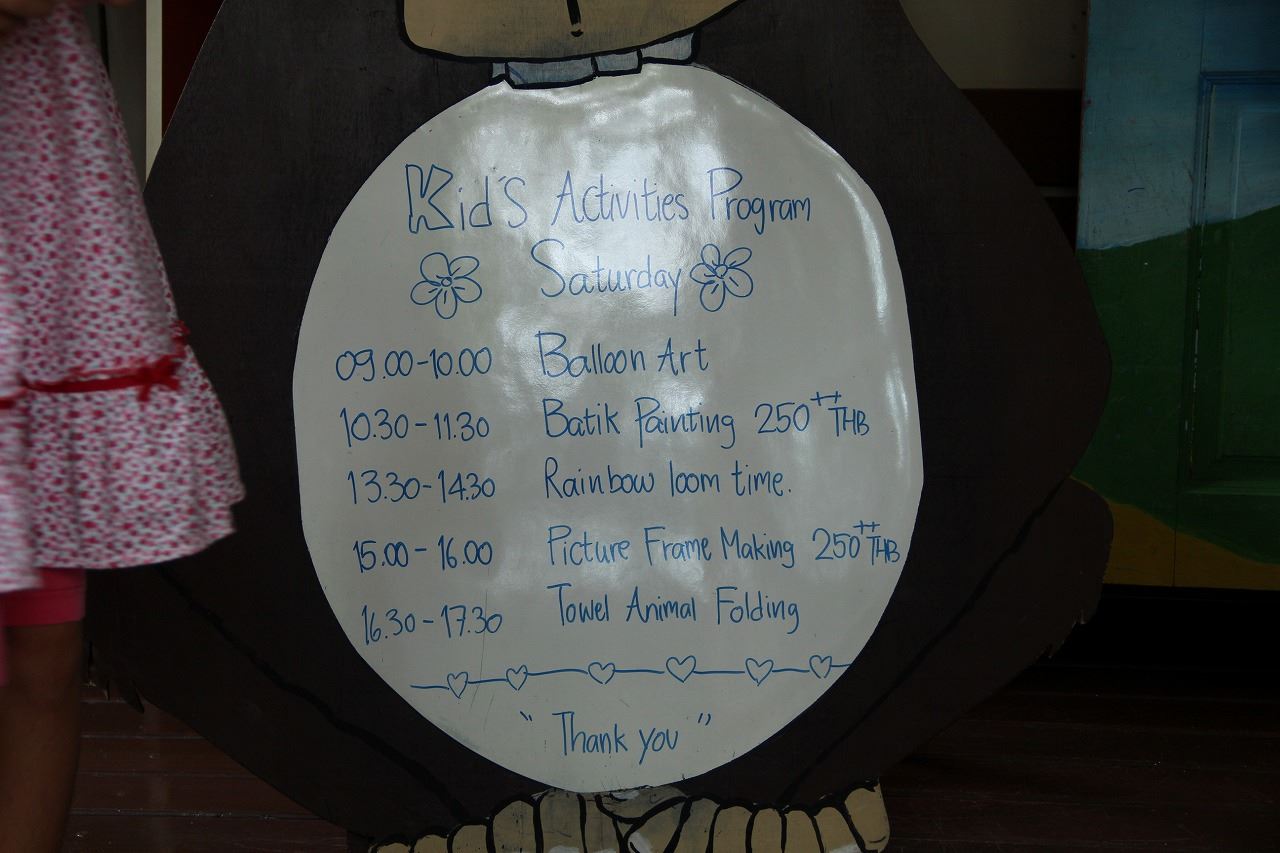 Kid's Activities Program
Saturday
09.00-10.00 Balloon Art
10.30-11.30 Batik Painting 250++ THB
13.30-14.30 Rainbow loom time.
15.00-16.00 Picture Frame Making 250++ THB
16.30-17.30 Towel Animal Folding
"Thank you"